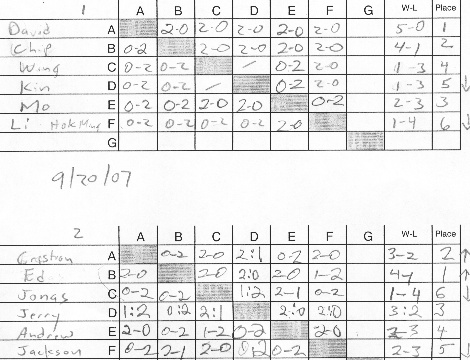 1 A B C D E F G W-L Place
David A 2-0 2-0 2-0 2-0 2-0 5-0 1
Chip B 0-2 2-0 2-0 2-0 2-0 4-1 2
Wing C 0-2 0-2 / 0-2 2-0 1-3 4
Kin D 0-2 0-2 / 0-2 2-0 1-3 5 ↓
Mo E 0-2 0-2 2-0 2-0 0-2 2-3 3
Li Hok Ming F 0-2 0-2 0-2 0-2 2-0 1-4 6 ↓
G
9/20/07
2 A B C D E F G W-L Place
A 0-2 2-0 2:1 0-2 2-0 3-2 2 ↑
Ed B 2-0 2-0 2:0 2-0 1-2 1 ↑
Jonas C 0-2 0-2 1:2 2-1 0-2 1-4 6 ↓
Jerry D 1:2 0:2 2:1 2:0 2:0 3:2 3
Andrew E 2-0 0-2 1-2 0-2 2-0 2-3 4
Jackson F 0-2 2-1 2-0 0:2 0-2 2-3 5